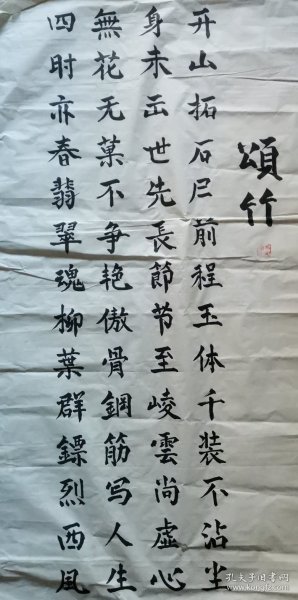 頌竹
开山拓石尺前程玉体千装不沾尘
身未出世先長節节至崚雲尚虚心
無花无菓不争艳傲骨鋼筋写人生
四时亦春翡翠魂柳葉群鏢烈西风
孔夫子旧书网